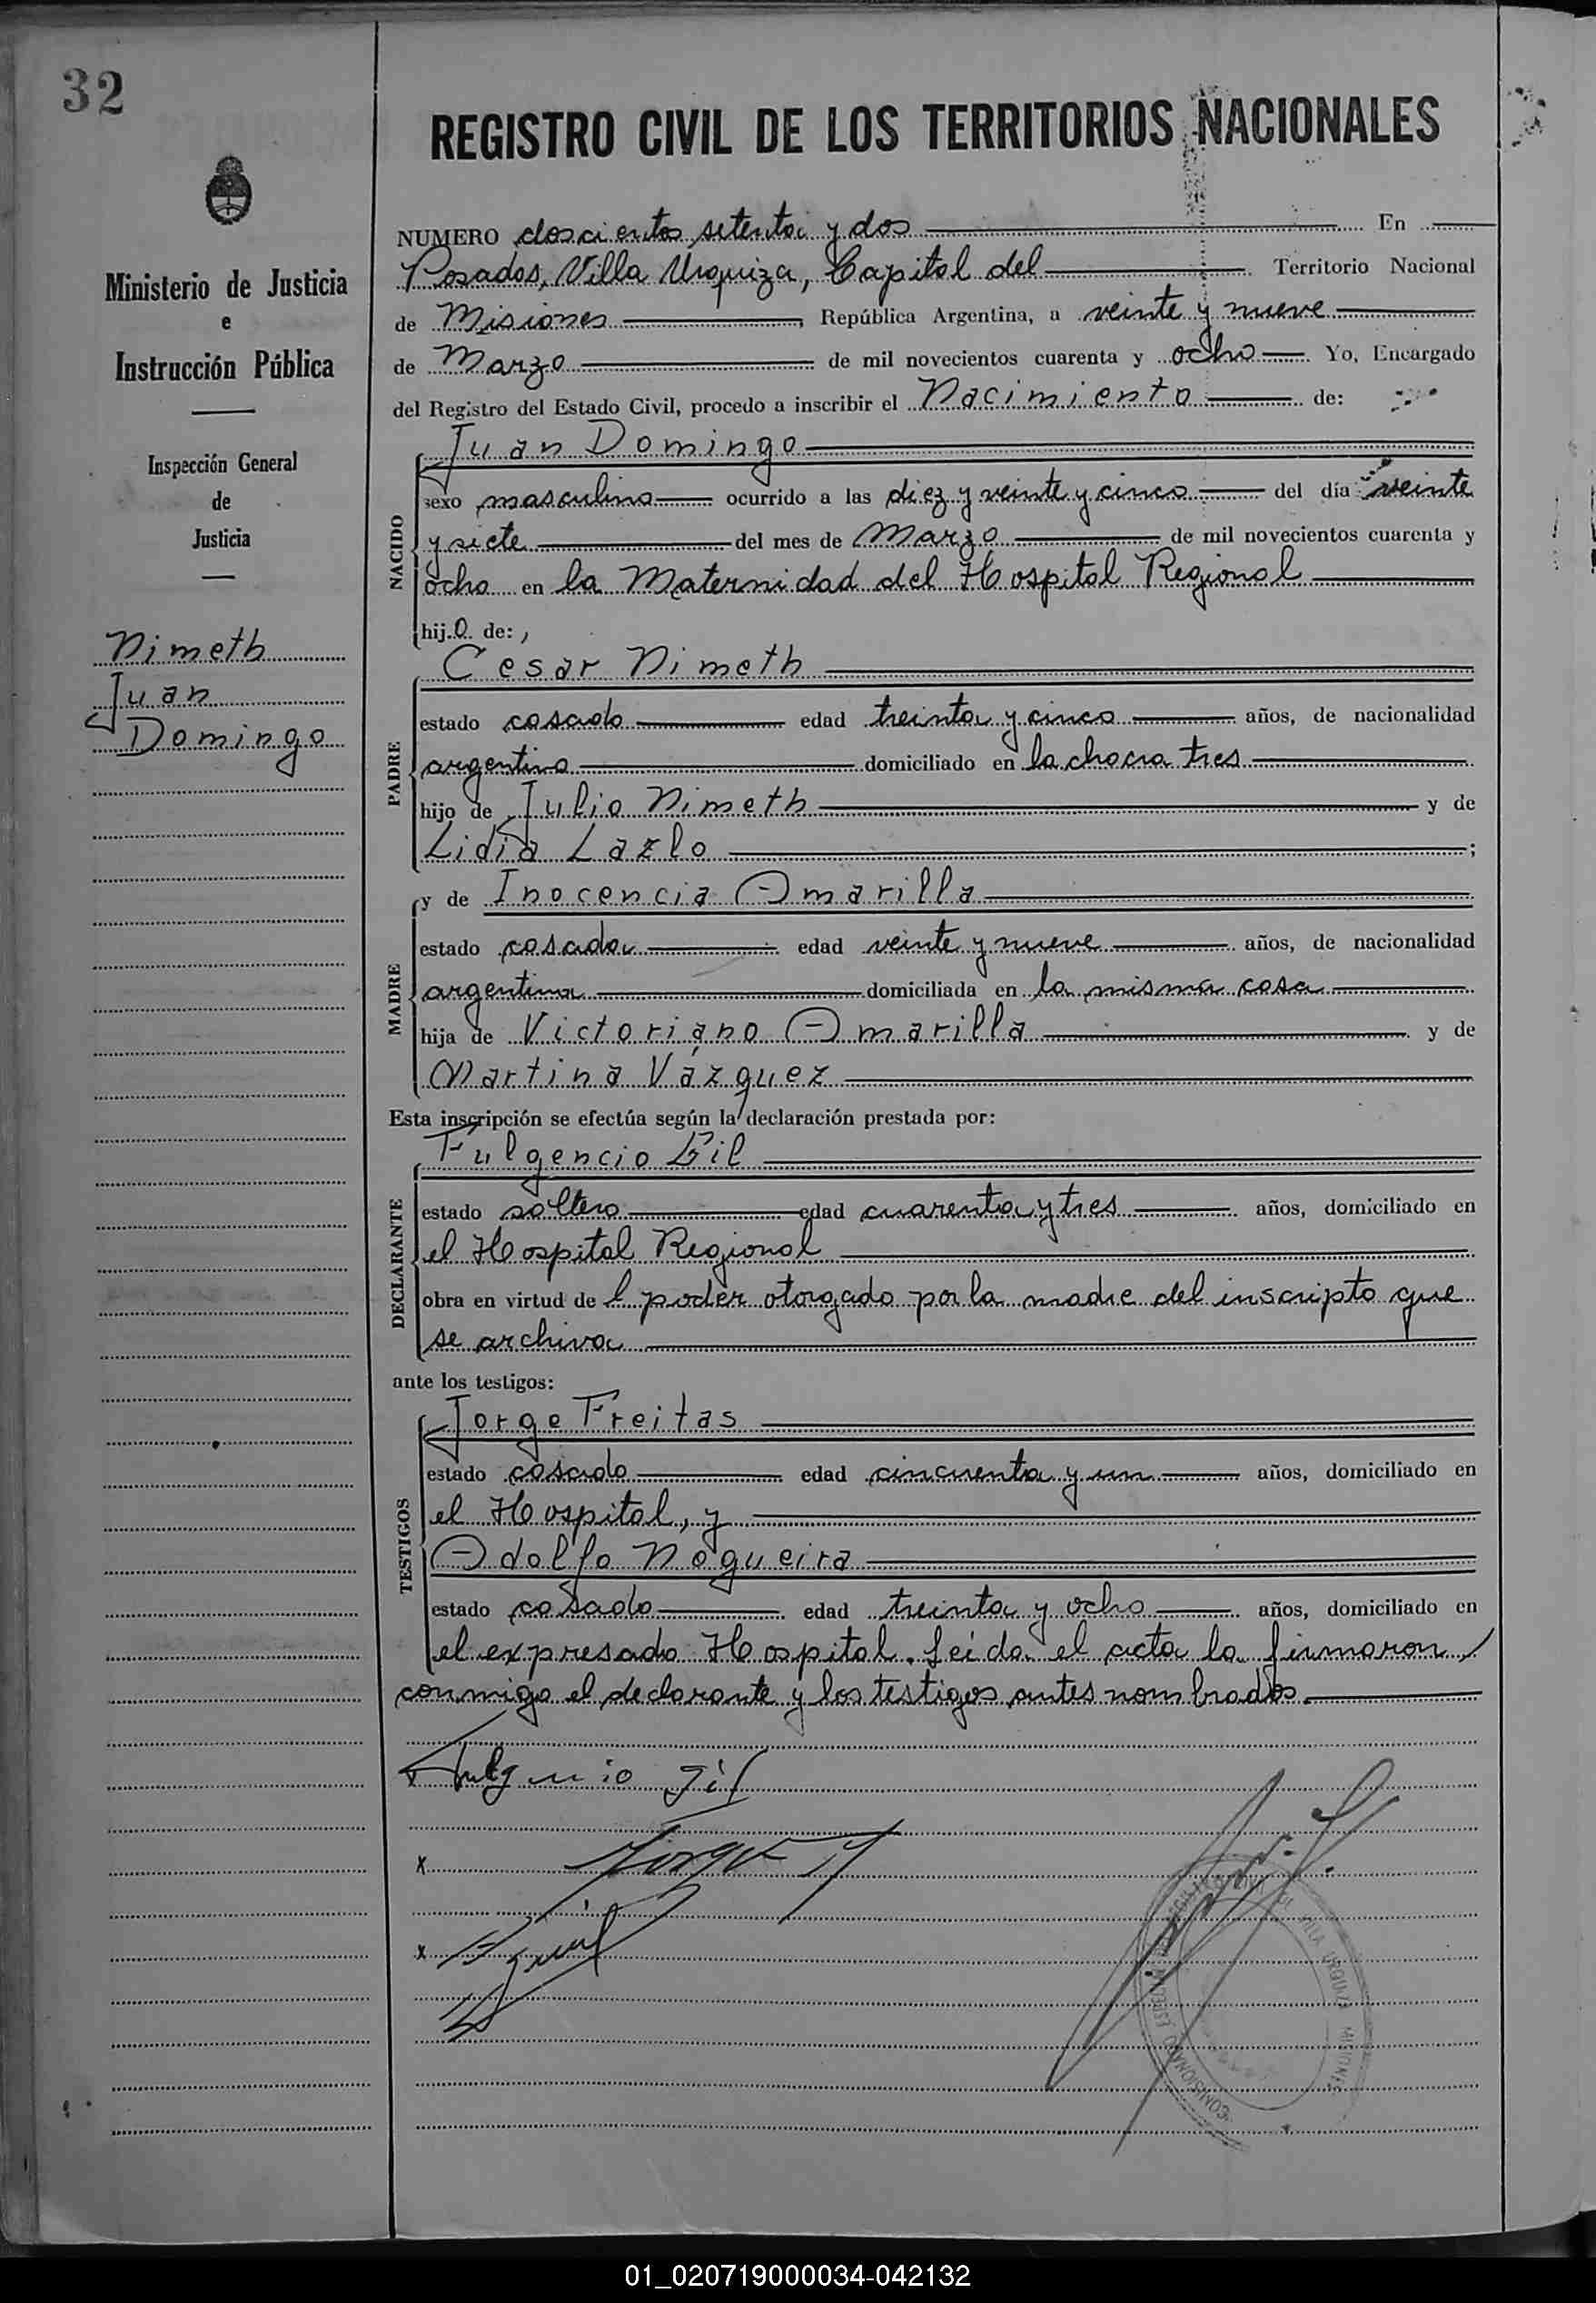 32
REGISTRO CIVIL DE LOS TERRITORIOS NACIONALES
Ministerio de Justicia
e
Instrucción Pública
Inspección General
de
Justicia
Nimeth
Juan
Domingo
NUMERO doscientos setenta y dos En
Posadas, Villa Urquiza, Capital del Territorio Nacional
de Misiones, República Argentina, a veinte y nueve
de Marzo de mil novecientos cuarenta y ocho Yo, Encargado
del Registro del Estado Civil, procedo a inscribir el Nacimiento de:
NACIDO
Juan Domingo
sexo masculino ocurrido a las diez y veinte y cinco del día veinte
y siete del mes de Marzo de mil novecientos cuarenta y
ocho en la Maternidad del Hospital Regional
hijo de:
PADRE
Cesar Nimeth
estado casado edad treinta y cinco años, de nacionalidad
argentino domiciliado en la chacra tres
hijo de Julio Nimeth y de
Lidia Lazlo ;
MADRE
y de Inocencia Amarilla
estado casada edad veinte y nueve años, de nacionalidad
argentina domiciliada en la misma casa
hija de Victoriano Amarilla y de
Martina Vázquez
Esta inscripción se efectúa según la declaración prestada por:
DECLARANTE
Fulgencio Gil
estado soltero edad cuarenta y tres años, domiciliado en
el Hospital Regional
obra en virtud del poder otorgado por la madre del inscripto que
se archiva
ante los testigos:
TESTIGOS
Jorge Freitas
estado casado edad cincuenta y un años, domiciliado en
el Hospital, y
Adolfo Nogueira
estado casado edad treinta y ocho años, domiciliado en
el expresado Hospital. Leida el acta la firmaron
conmigo el declarante y los testigos antes nombrados.
Fulgencio Gil
x Jorge
x
VILLA URQUIZA MISIONES
01_020719000034-042132